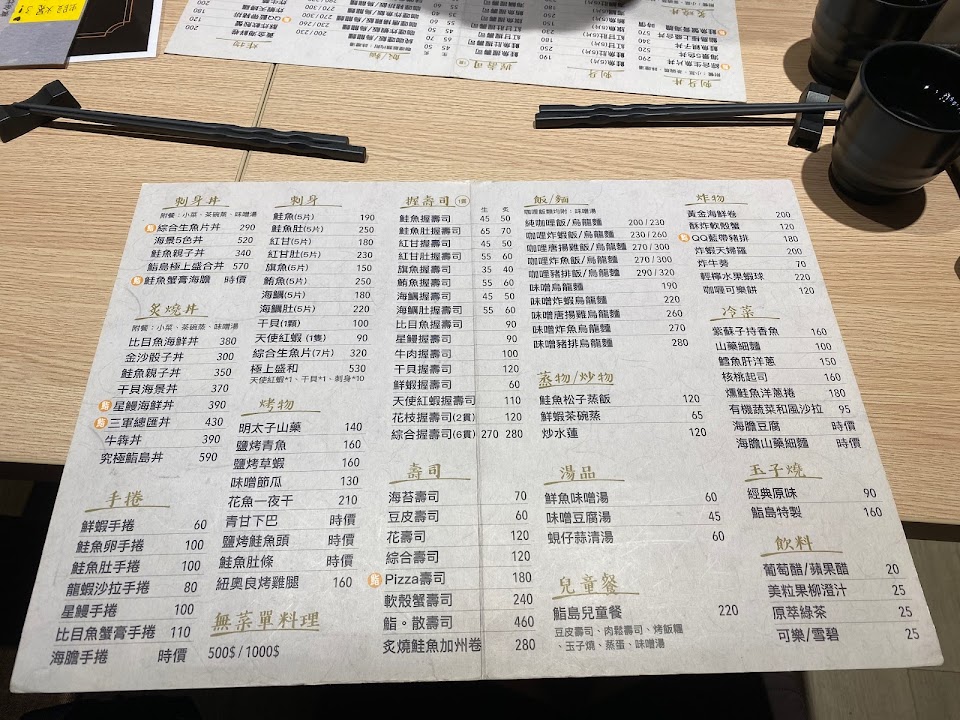 刺身丼
附餐：小菜、茶碗蒸、味噌湯
鮨 綜合生魚片丼 290
海景5色丼 520
鮭魚親子丼 340
鮨島極上盛合丼 570
鮨 鮭魚蟹膏海膽 時價
炙燒丼
附餐：小菜、茶碗蒸、味噌湯
比目魚海鮮丼 380
金沙骰子丼 300
鮭魚親子丼 350
干貝海景丼 370
鮨 星鰻海鮮丼 390
鮨 三軍總匯丼 430
牛犇丼 390
究極鮨島丼 590
手捲
鮮蝦手捲 60
鮭魚卵手捲 100
鮭魚肚手捲 100
龍蝦沙拉手捲 80
星鰻手捲 100
比目魚蟹膏手捲 110
海膽手捲 時價
刺身
鮭魚(5片) 190
鮭魚肚(5片) 250
紅甘(5片) 180
紅甘肚(5片) 230
旗魚(5片) 150
鮪魚(5片) 250
海鯛(5片) 180
海鯛肚(5片) 220
干貝(1顆) 100
天使紅蝦(1隻) 90
綜合生魚片(7片) 320
極上盛和 530
天使紅蝦*1、干貝*1、刺身*10
烤物
明太子山藥 140
鹽烤青魚 160
鹽烤草蝦 160
味噌節瓜 130
花魚一夜干 210
青甘下巴 時價
鹽烤鮭魚頭 時價
鮭魚肚條 時價
紐奧良烤雞腿 160
無菜單料理
500$ / 1000$
握壽司 1貫 生 炙
鮭魚握壽司 45 50
鮭魚肚握壽司 65 70
紅甘握壽司 45 50
紅甘肚握壽司 55 60
旗魚握壽司 35 40
鮪魚握壽司 55 60
海鯛握壽司 45 50
海鯛肚握壽司 55 60
比目魚握壽司 90
星鰻握壽司 90
牛肉握壽司 100
干貝握壽司 120
鮮蝦握壽司 60
天使紅蝦握壽司 110
花枝握壽司(2貫) 120
綜合握壽司(6貫) 270 280
壽司
海苔壽司 70
豆皮壽司 60
花壽司 120
綜合壽司 120
鮨 Pizza壽司 180
軟殼蟹壽司 240
鮨。散壽司 460
炙燒鮭魚加州卷 280
飯/麵
咖哩飯類均附：味噌湯
純咖哩飯/烏龍麵 200 / 230
咖哩炸蝦飯/烏龍麵 230 / 260
咖哩唐揚雞飯/烏龍麵 270 / 300
咖哩炸魚飯/烏龍麵 270 / 300
咖哩豬排飯/烏龍麵 290 / 320
味噌烏龍麵 190
味噌炸蝦烏龍麵 220
味噌唐揚雞烏龍麵 260
味噌炸魚烏龍麵 270
味噌豬排烏龍麵 280
蒸物/炒物
鮭魚松子蒸飯 120
鮮蝦茶碗蒸 65
炒水蓮 120
湯品
鮮魚味噌湯 60
味噌豆腐湯 45
蜆仔蒜清湯 60
兒童餐
鮨島兒童餐 220
豆皮壽司、肉鬆壽司、烤飯糰
、玉子燒、蒸蛋、味噌湯
炸物
黃金海鮮卷 200
酥炸軟殼蟹 120
鮨 QQ藍帶豬排 180
炸蝦天婦羅 200
炸牛蒡 70
輕檸水果蝦球 220
咖哩可樂餅 120
冷菜
紫蘇子持香魚 160
山藥細麵 100
鱈魚肝洋蔥 150
核桃起司 160
燻鮭魚洋蔥捲 180
有機蔬菜和風沙拉 95
海膽豆腐 時價
海膽山藥細麵 時價
玉子燒
經典原味 90
鮨島特製 160
飲料
葡萄醋/蘋果醋 20
美粒果柳澄汁 25
原萃綠茶 25
可樂/雪碧 25